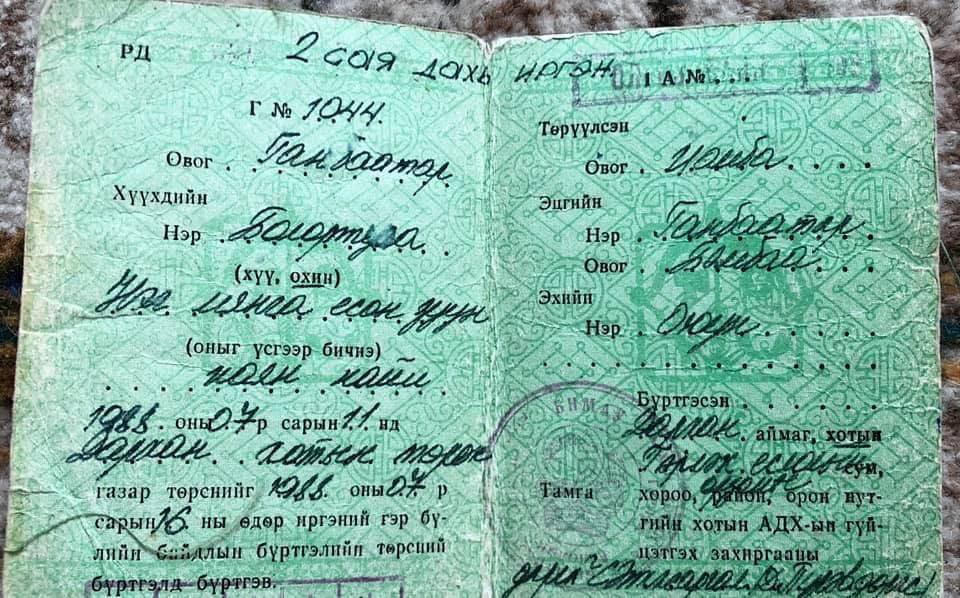 РД 2 сая дахь иргэн
Г № 1044.
Овог . Ганбаатар
Хүүхдийн
Нэр . Болортуяа
(хүү, охин)
Нэг мянга есөн зуун
(оныг үсгээр бичнэ)
наян найм
1988. оны 07 р сарын 11. нд
Дархан . . хотын төрөх
газар төрснийг 1988 оны 07 р
сарын 16. ны өдөр иргэний гэр бү-
лийн байдлын бүртгэлийн төрсний
бүртгэлд бүртгэв.
1 А № . . .
Төрүүлсэн
Овог .
Эцгийн
Нэр . Ганбаатар
Овог .
Эхийн
Нэр . Оюун
Бүртгэсэн
Дархан. аймаг, хотын
сум,
хороо, район, орон нут-
Тамга
гийн хотын АДХ-ын гүй-
цэтгэх захиргааны
БНМАУ